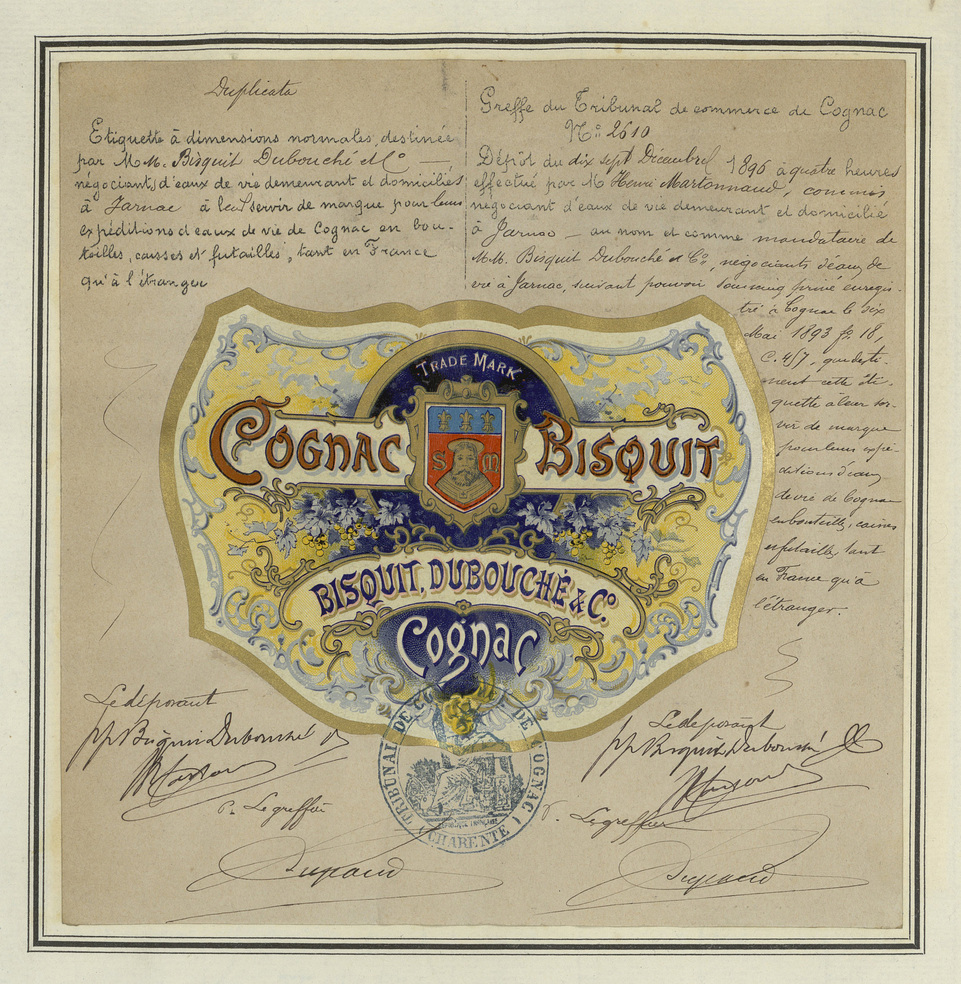 Duplicata
Etiquette à dimensions normales, destinée
par M.M. Bisquit Dubouché & Co —,
négociants d'eaux de vie demeurant et domiciliés
à Jarnac à leur servir de marque pour leurs
expéditions d'eaux de vie de Cognac en bou-
teilles, caisses et futailles, tant en France
qu'à l'étranger
Greffe du Tribunal de commerce de Cognac
No: 2610
Dépôt du dix sept Décembre 1896 à quatre heures
effectué par M. Henri Martonnaud, commis
négociant d'eaux de vie demeurant et domicilié
à Jarnac — au nom et comme mandataire de
M.M. Bisquit Dubouché et Co, négociants d'eaux de
vie à Jarnac, suivant pouvoir sous seing privé enregis-
tré à Cognac le six
Mai 1893 fo 18,
C. 4/7, qui desti-
nent cette éti-
quette à leur ser-
vir de marque
pour leurs expé-
ditions d'eaux
de vie de Cognac
en bouteilles, caisses
et futailles, tant
en France qu'à
l'étranger.
TRADE MARK
COGNAC BISQUIT
S M
BISQUIT, DUBOUCHÉ & Co.
Cognac
TRIBUNAL DE COMMERCE DE COGNAC
(CHARENTE)
Le déposant
pp Bisquit Dubouché
P. Le greffier
Le déposant
pp Bisquit Dubouché
P. Le greffier